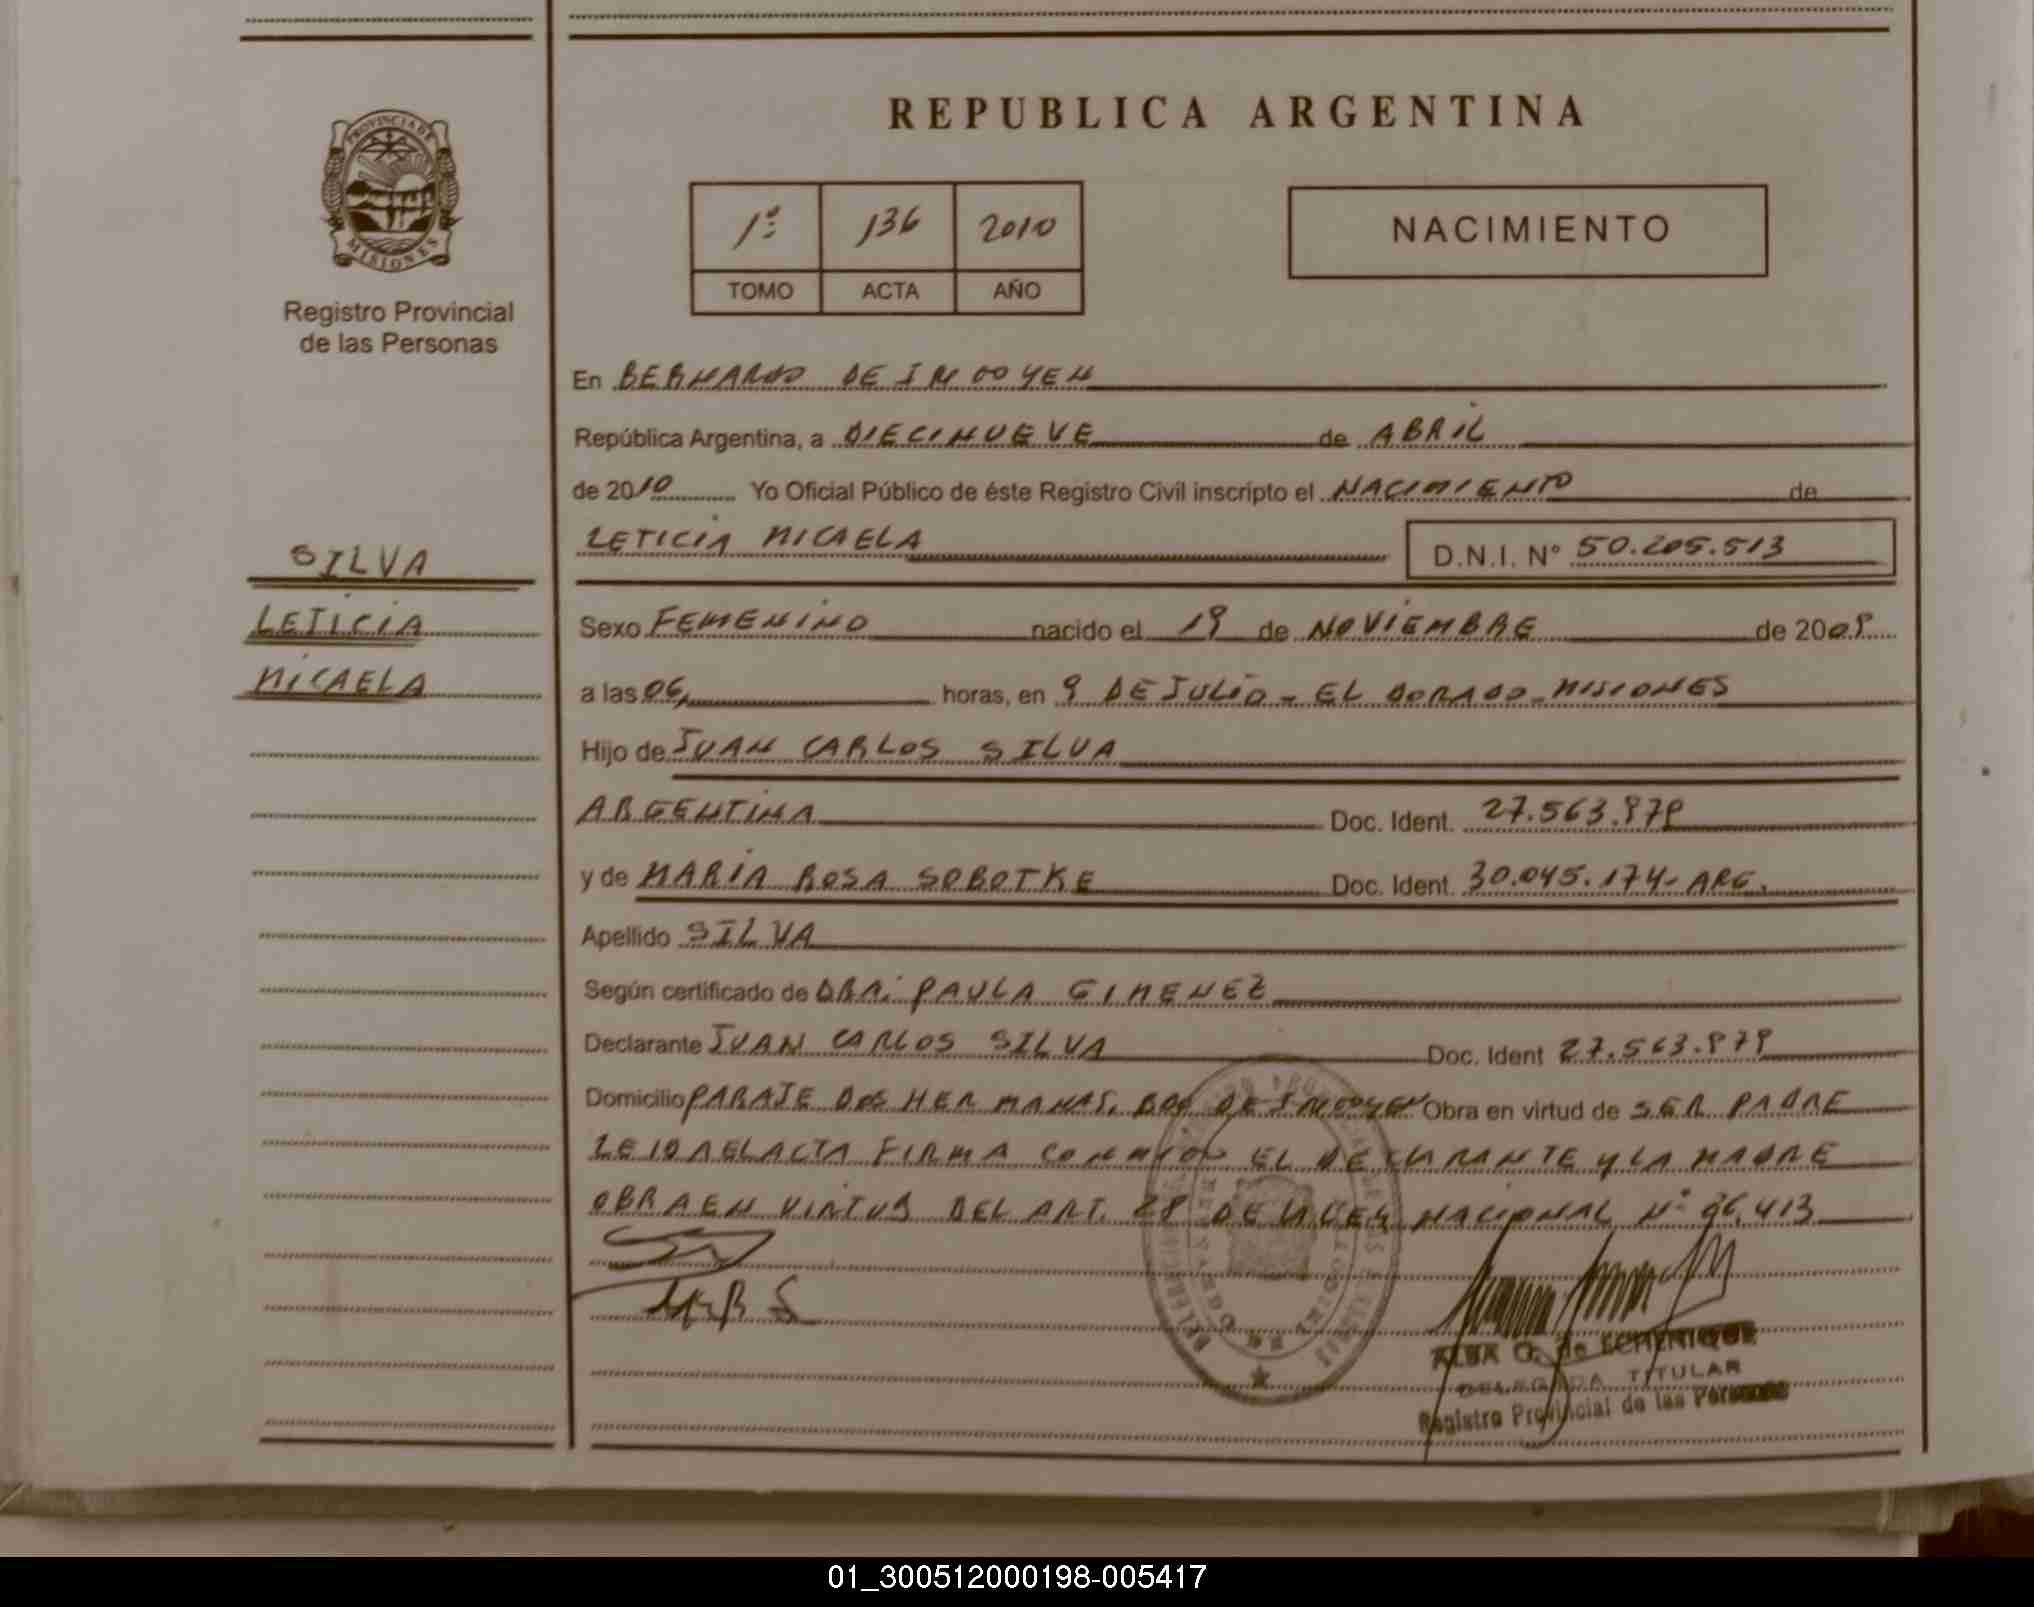 REPUBLICA ARGENTINA
PROVINCIA DE
MISIONES
Registro Provincial
de las Personas
1º 136 2010
TOMO ACTA AÑO
NACIMIENTO
En BERNARDO DE IRIGOYEN
República Argentina, a DIECINUEVE de ABRIL
de 2010 Yo Oficial Público de éste Registro Civil inscripto el NACIMIENTO de
LETICIA MICAELA
D.N.I. Nº 50.205.513
SILVA
LETICIA
MICAELA
Sexo FEMENINO nacido el 19 de NOVIEMBRE de 2009
a las 06, horas, en 9 DE JULIO - EL DORADO - MISIONES
Hijo de JUAN CARLOS SILVA
ARGENTINA Doc. Ident. 27.563.979
y de MARIA ROSA SOBOTKE Doc. Ident. 30.045.174- ARG.
Apellido SILVA
Según certificado de DRA: PAULA GIMENEZ
Declarante JUAN CARLOS SILVA Doc. Ident 27.563.979
Domicilio PARAJE DOS HERMANAS, BDO DE IRIGOYEN Obra en virtud de SER PADRE
LEIDA EL ACTA FIRMA CONMIGO EL DECLARANTE Y LA MADRE
OBRA EN VIRTUD DEL ART. 28 DE LA LEY NACIONAL Nº 26.413
ALBA O. de ECHENIQUE
DELEGADA TITULAR
Registro Provincial de las Personas
01_300512000198-005417